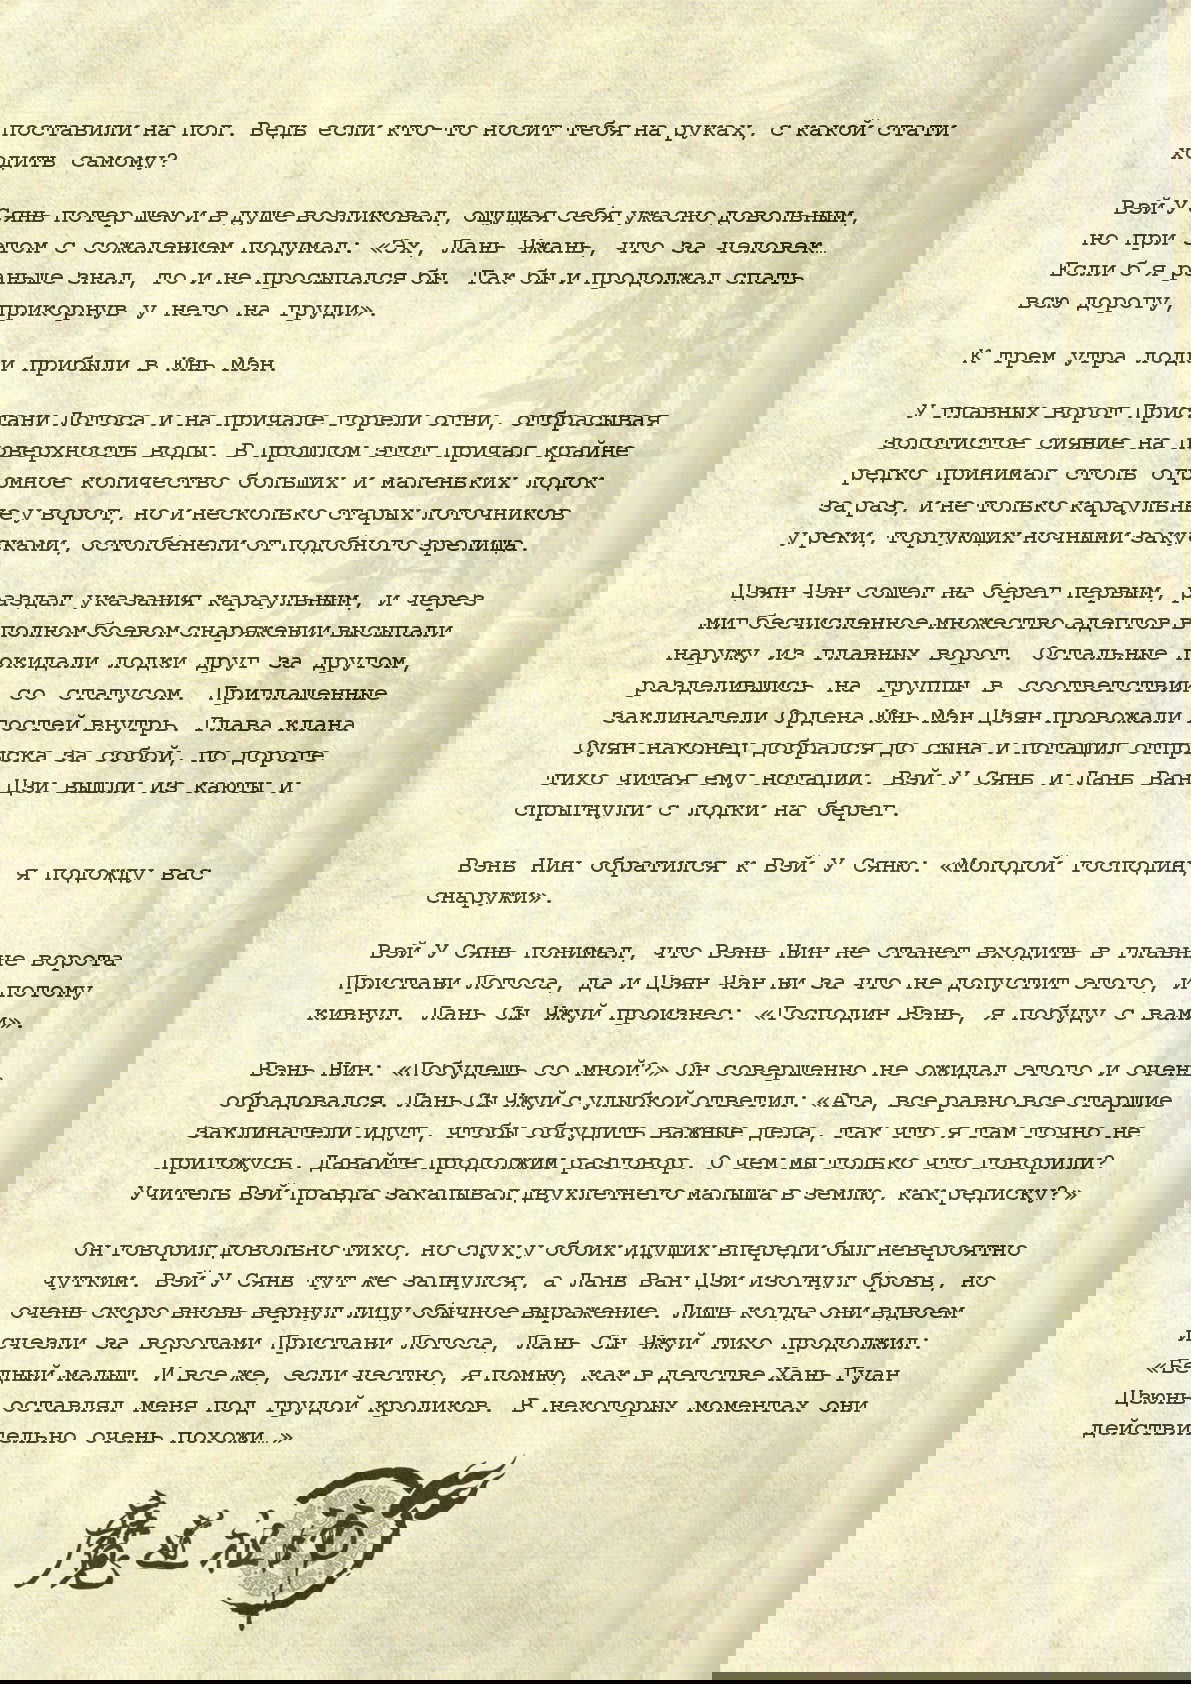 поставили на пол. Ведь если кто-то носит тебя на руках, с какой стати
ходить самому?
Вэй У Сянь потер шею и в душе возликовал, ощущая себя ужасно довольным,
но при этом с сожалением подумал: «Эх, Лань Чжань, что за человек…
Если б я раньше знал, то и не просыпался бы. Так бы и продолжал спать
всю дорогу, прикорнув у него на груди».
К трем утра лодки прибыли в Юнь Мэн.
У главных ворот Пристани Лотоса и на причале горели огни, отбрасывая
золотистое сияние на поверхность воды. В прошлом этот причал крайне
редко принимал столь огромное количество больших и маленьких лодок
за раз, и не только караульные у ворот, но и несколько старых лоточников
у реки, торгующих ночными закусками, остолбенели от подобного зрелища.
Цзян Чэн сошел на берег первым, раздал указания караульным, и через
миг бесчисленное множество адептов в полном боевом снаряжении высыпали
наружу из главных ворот. Остальные покидали лодки друг за другом,
разделившись на группы в соответствии со статусом. Приглашенные
заклинатели Ордена Юнь Мэн Цзян провожали гостей внутрь. Глава клана
Оуян наконец добрался до сына и потащил отпрыска за собой, по дороге
тихо читая ему нотации. Вэй У Сянь и Лань Ван Цзи вышли из каюты и
спрыгнули с лодки на берег.
Вэнь Нин обратился к Вэй У Сяню: «Молодой господин, я подожду вас
снаружи».
Вэй У Сянь понимал, что Вэнь Нин не станет входить в главные ворота
Пристани Лотоса, да и Цзян Чэн ни за что не допустит этого, и потому
кивнул. Лань Сы Чжуй произнес: «Господин Вэнь, я побуду с вами».
Вэнь Нин: «Побудешь со мной?» Он совершенно не ожидал этого и очень
обрадовался. Лань Сы Чжуй с улыбкой ответил: «Ага, все равно все старшие
заклинатели идут, чтобы обсудить важные дела, так что я там точно не
пригожусь. Давайте продолжим разговор. О чем мы только что говорили?
Учитель Вэй правда закапывал двухлетнего малыша в землю, как редиску?»
Он говорил довольно тихо, но слух у обоих идущих впереди был невероятно
чутким. Вэй У Сянь тут же запнулся, а Лань Ван Цзи изогнул бровь, но
очень скоро вновь вернул лицу обычное выражение. Лишь когда они вдвоем
исчезли за воротами Пристани Лотоса, Лань Сы Чжуй тихо продолжил:
«Бедный малыш. И все же, если честно, я помню, как в детстве Хань Гуан
Цзюнь оставлял меня под грудой кроликов. В некоторых моментах они
действительно очень похожи…»
魔道祖师